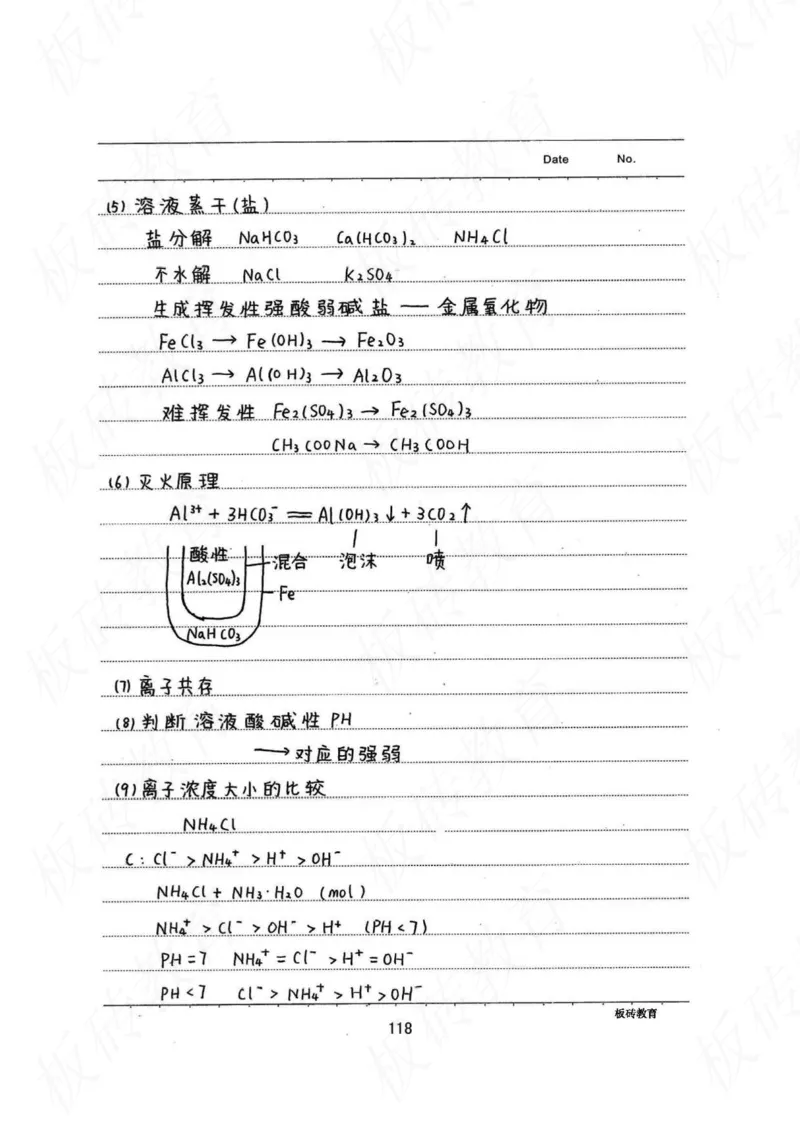 Date No.
(5) 溶液蒸干(盐)
盐分解 NaHCO3 Ca(HCO3)2 NH4Cl
不水解 NaCl K2SO4
生成挥发性强酸弱碱盐 — 金属氧化物
FeCl3 → Fe(OH)3 → Fe2O3
AlCl3 → Al(OH)3 → Al2O3
难挥发性 Fe2(SO4)3 → Fe2(SO4)3
CH3COONa → CH3COOH
(6) 灭火原理
Al³⁺ + 3HCO3⁻ = Al(OH)3↓ + 3CO2↑
泡沫 喷
酸性
Al2(SO4)3
混合
Fe
NaHCO3
(7) 离子共存
(8) 判断溶液酸碱性 PH
→ 对应的强弱
(9) 离子浓度大小的比较
NH4Cl
C: Cl⁻ > NH4⁺ > H⁺ > OH⁻
NH4Cl + NH3·H2O (mol)
NH4⁺ > Cl⁻ > OH⁻ > H⁺ (PH<7)
PH=7 NH4⁺ = Cl⁻ > H⁺ = OH⁻
PH<7 Cl⁻ > NH4⁺ > H⁺ > OH⁻
板砖教育
118